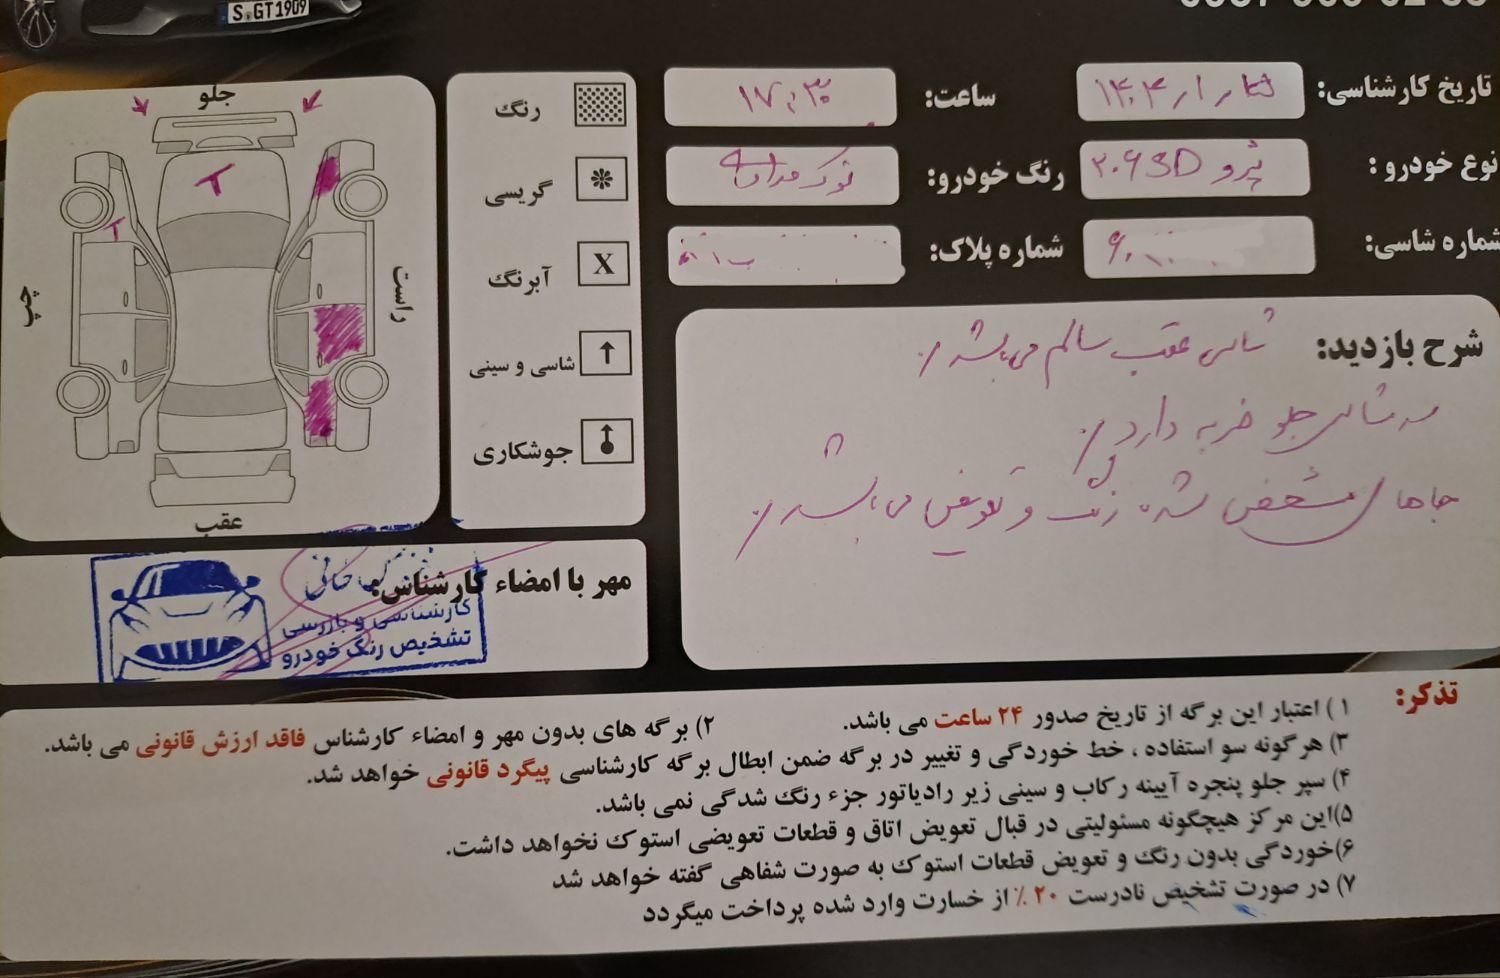 S GT1909
تاریخ کارشناسی: ۱۴۰۴/۱/
ساعت: ۱۷:۳۰
نوع خودرو: پژو ۲۰۶ SD
رنگ خودرو: نوک مدادی
شماره شاسی:
شماره پلاک:
جلو
T
T
راست
چپ
عقب
رنگ
گریسی
X آبرنگ
شاسی و سینی
جوشکاری
شرح بازدید: شاسی عقب سالم می باشد.
سر شاسی جلو ضربه دارد.
جاهای مشخص شده رنگ و تعویض می باشد.
مهر با امضاء کارشناس:
کارشناسی و بازرسی
تشخیص رنگ خودرو
تذکر:
۱) اعتبار این برگه از تاریخ صدور ۲۴ ساعت می باشد.
۲) برگه های بدون مهر و امضاء کارشناس فاقد ارزش قانونی می باشد.
۳) هرگونه سو استفاده ، خط خوردگی و تغییر در برگه ضمن ابطال برگه کارشناسی پیگرد قانونی خواهد شد.
۴) سپر جلو پنجره آیینه رکاب و سینی زیر رادیاتور جزء رنگ شدگی نمی باشد.
۵)این مرکز هیچگونه مسئولیتی در قبال تعویض اتاق و قطعات تعویضی استوک نخواهد داشت.
۶)خوردگی بدون رنگ و تعویض قطعات استوک به صورت شفاهی گفته خواهد شد
۷) در صورت تشخیص نادرست ۲۰٪ از خسارت وارد شده پرداخت میگردد